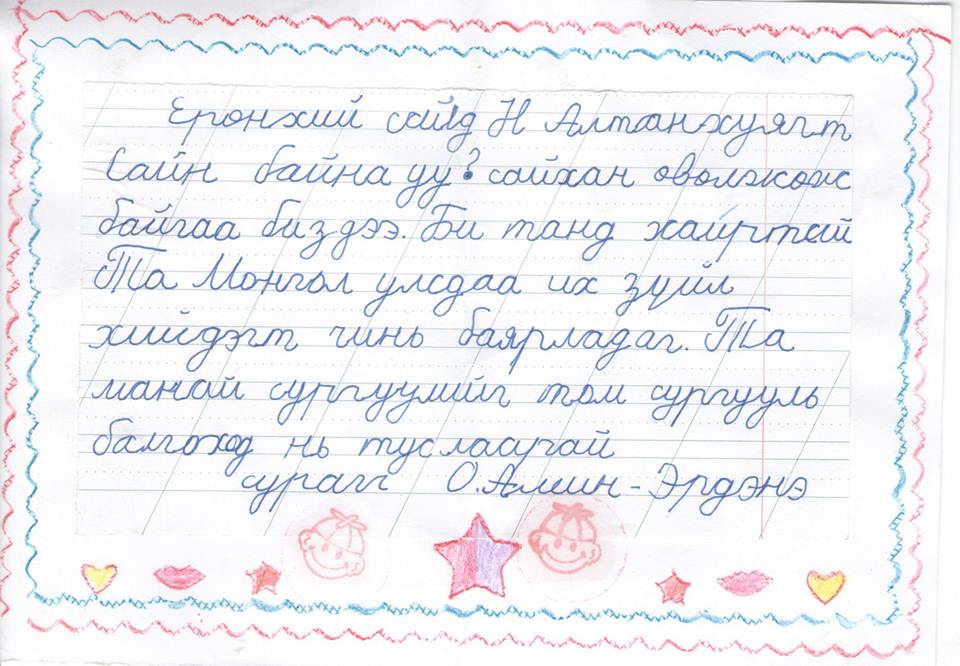 Еронхий сайд Н Алтанхуягт
Сайн байна уу? сайхан оволжож
байгаа биздээ. Би танд хайртай
Та Монгол улсдаа их зуйл
хийдэгт чинь баярладаг. Та
манай сургуулийг том сургууль
балгоход нь туслаарай
сурагч О.Амин-Эрдэнэ